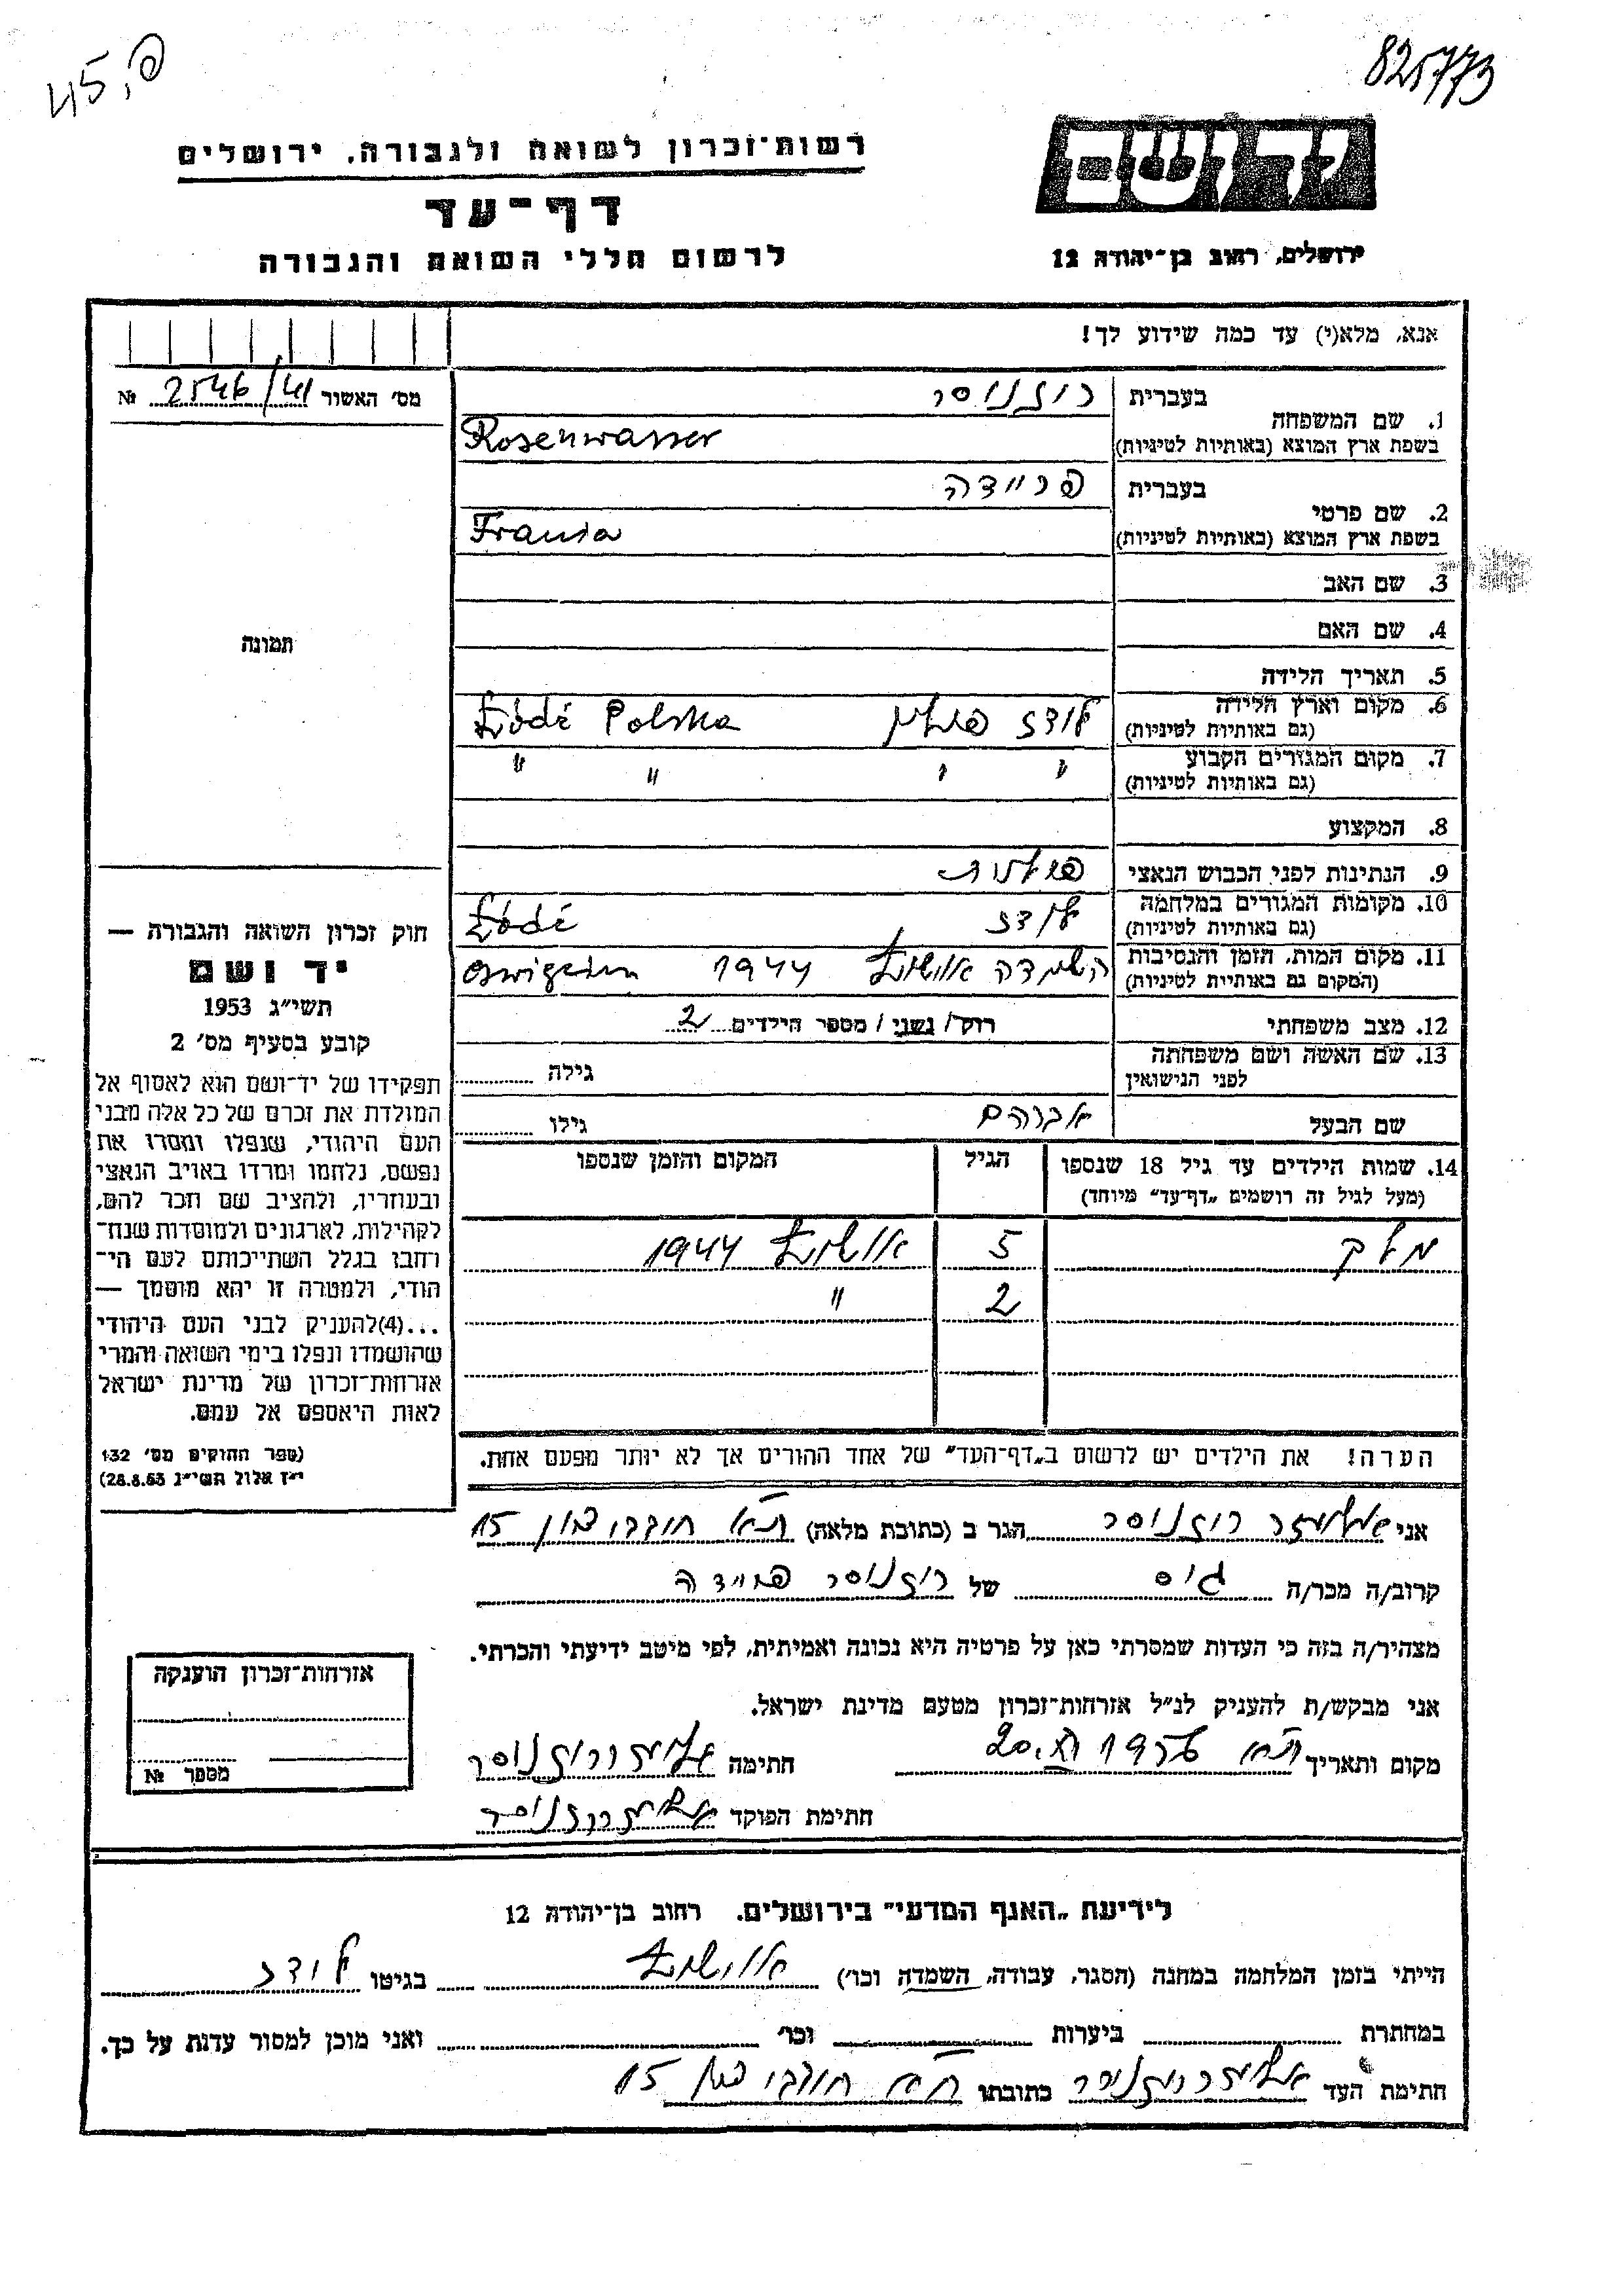 45, פ
825773
יד ושם
רשות־זכרון לשואה ולגבורה, ירושלים
דף־עד
לרשום חללי השואה והגבורה
ירושלים, רחוב בן־יהודה 12
אנא, מלא(י) עד כמה שידוע לך!
מס׳ האשור 2546/41 №
1. שם המשפחה בעברית רוזנוסר
בשפת ארץ המוצא (באותיות לטיניות) Rosenwasser
2. שם פרטי בעברית פריידה
בשפת ארץ המוצא (באותיות לטיניות) Frania
3. שם האב
4. שם האם
תמונה
5. תאריך הלידה
6. מקום וארץ הלידה לודז פולין Łódź Polska
(גם באותיות לטיניות)
7. מקום המגורים הקבוע " " " "
(גם באותיות לטיניות)
8. המקצוע
9. הנתינות לפני הכבוש הנאצי פולנית
10. מקומות המגורים במלחמה לודז Łódź
(גם באותיות לטיניות)
11. מקום המות, הזמן והנסיבות השמדה אושויץ 1944 Oswięcim
(המקום גם באותיות לטיניות)
12. מצב משפחתי רווק/ נשוי / מספר הילדים 2
13. שם האשה ושם משפחתה גילה
לפני הנישואין
שם הבעל אברהם גילו
14. שמות הילדים עד גיל 18 שנספו הגיל המקום והזמן שנספו
(מעל לגיל זה רושמים „דף־עד״ מיוחד)
מלק 5 אושויץ 1944
2 "
הערה! את הילדים יש לרשום ב„דף־העד״ של אחד ההורים אך לא יותר מפעם אחת.
חוק זכרון השואה והגבורה —
יד ושם
תשי״ג 1953
קובע בסעיף מס׳ 2
תפקידו של יד־ושם הוא לאסוף אל
המולדת את זכרם של כל אלה מבני
העם היהודי, שנפלו ומסרו את
נפשם, נלחמו ומרדו באויב הנאצי
ובעוזריו, ולהציב שם וזכר להם,
לקהילות, לארגונים ולמוסדות שנח־
רחבו בגלל השתייכותם לעם הי־
הודי, ולמטרה זו יהא מוסמך —
...(4)להעניק לבני העם היהודי
שהושמדו ונפלו בימי השואה והמרי
אזרחות־זכרון של מדינת ישראל
לאות היאספם אל עמם.
(ספר החוקים מס׳ 132
י״ז אלול תשי״ג 28.8.53)
אני אליעזר רוזנוסר הגר ב (כתובת מלאה) ת״א 15
קרוב/ה מכר/ה גיס של רוזנוסר פריידה
מצהיר/ה בזה כי העדות שמסרתי כאן על פרטיה היא נכונה ואמיתית, לפי מיטב ידיעתי והכרתי.
אני מבקש/ת להעניק לנ״ל אזרחות־זכרון מטעם מדינת ישראל.
מקום ותאריך ת״א 1956 חתימה אליעזר רוזנוסר
חתימת הפוקד אליעזר רוזנוסר
אזרחות־זכרון הוענקה
מספר №
לידיעת „האגף המדעי״ בירושלים. רחוב בן־יהודה 12
הייתי בזמן המלחמה במחנה (הסגר, עבודה, השמדה וכו׳) אושויץ בגיטו לודז
במחתרת ביערות וכו׳ ואני מוכן למסור עדות על כך.
חתימת העד אליעזר רוזנוסר כתובתו ת״א 15